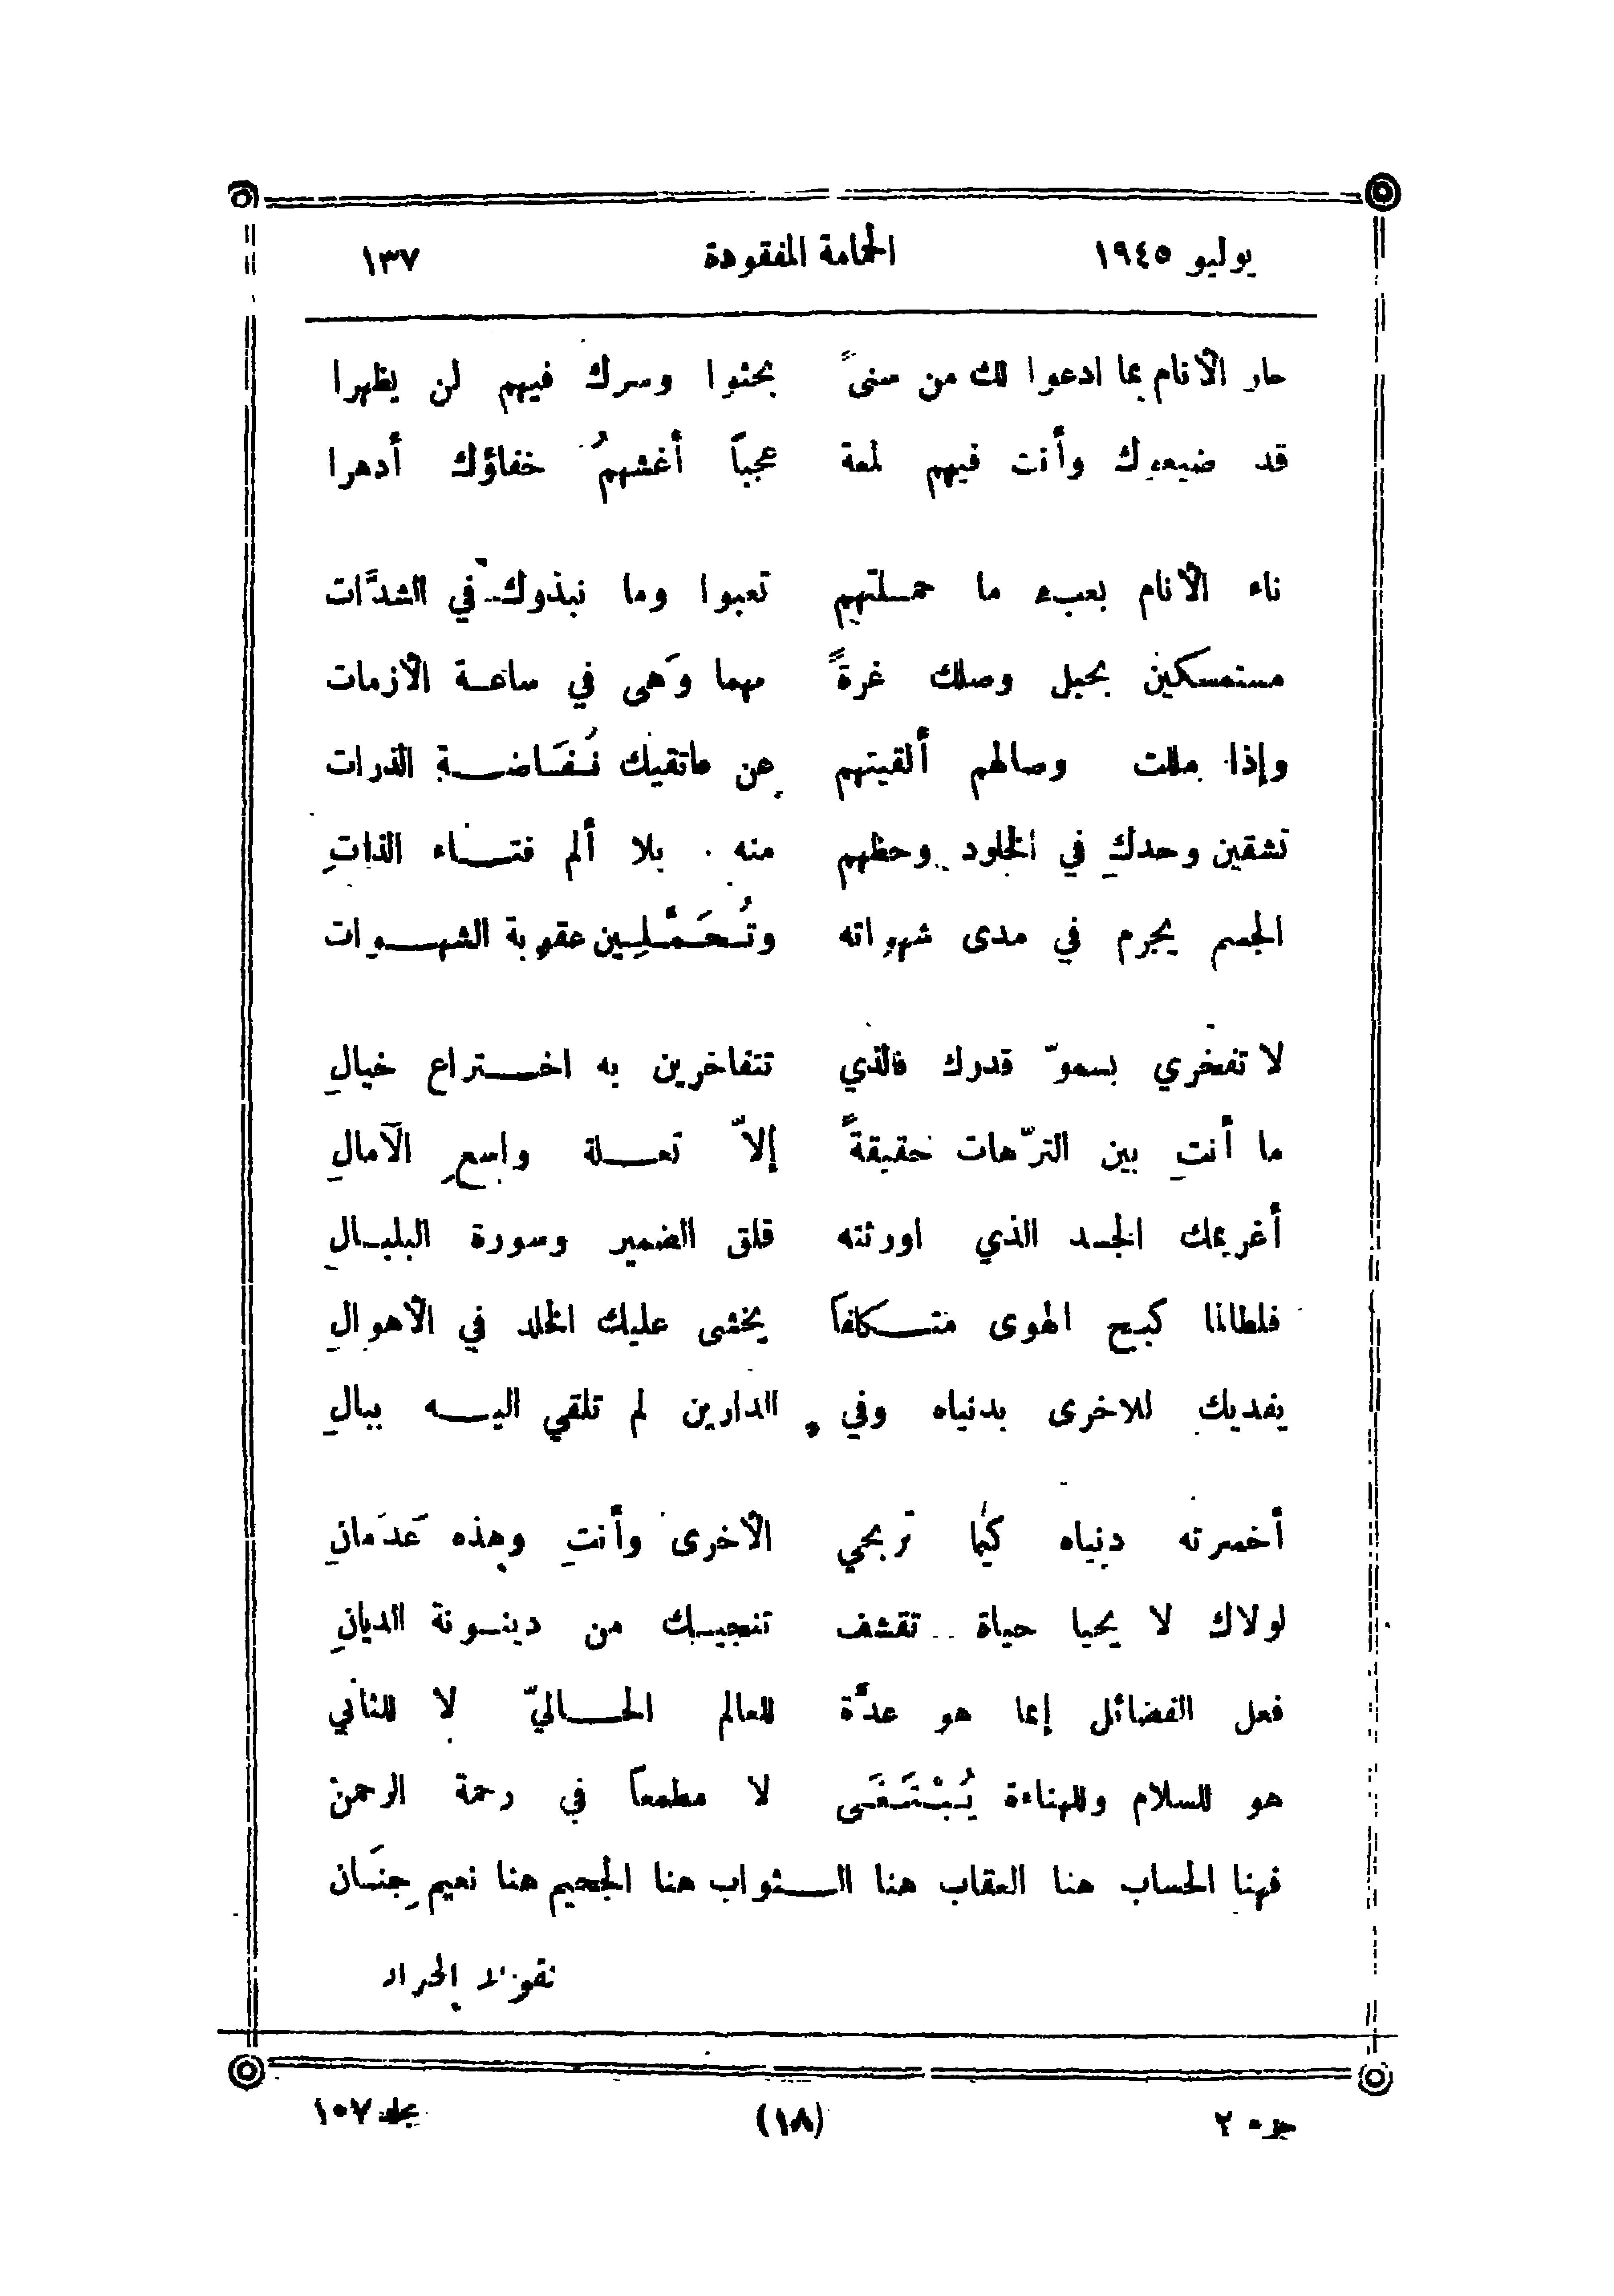 يوليو ١٩٤٥ الحمامة المفقودة ١٣٧
حار الأنام بما ادعوا لك من سنىً بحثوا وسرك فيهم لن يظهرا
قد ضيعوك وأنت فيهم لمعة عجباً أغشهمُ خفاؤك أدهرا
ناء الأنام بعبء ما حملتهم تعبوا وما نبذوك في الشدَّات
مستمسكين بحبل وصلك غرةً مهما وَهى في ساعة الأزمات
وإذا مللت وصالهم ألقيتهم عن عاتقيك نُفَاضة الذرات
تشقين وحدكِ في الخلود وحظهم منه بلا ألم فناء الذاتِ
الجسم يجرم في مدى شهواته وتُحَمَّلِين عقوبة الشهوات
لا تفخري بسموّ قدرك فالذي تتفاخرين به اختراع خيالِ
ما أنتِ بين الترّهات حقيقةً إلاّ تعلة واسعِ الآمالِ
أغريمك الجسد الذي اورثته قلق الضمير وسورة البلبالِ
فلطالما كبح الهوى متكلفاً يخشى عليك الخلد في الأهوالِ
يفديك للاخرى بدنياه وفي الدارين لم تلقي اليه ببالِ
أخسرته دنياه كيما تربحي الأخرى وأنتِ وهذه عَدَمانِ
لولاك لا يحيا حياة تقشف تنجيك من دينونة الديانِ
فعل الفضائل إنما هو عدَّة للعالم الحاليّ لا للثاني
هو للسلام وللهناءة يُبْتَغَى لا مطمعاً في رحمة الرحمن
فهنا الحساب هنا العقاب هنا الثواب هنا الجحيم هنا نعيم جِنَان
نقولا الحداد
جزء ٢ (١٨) مجلد ١٠٧